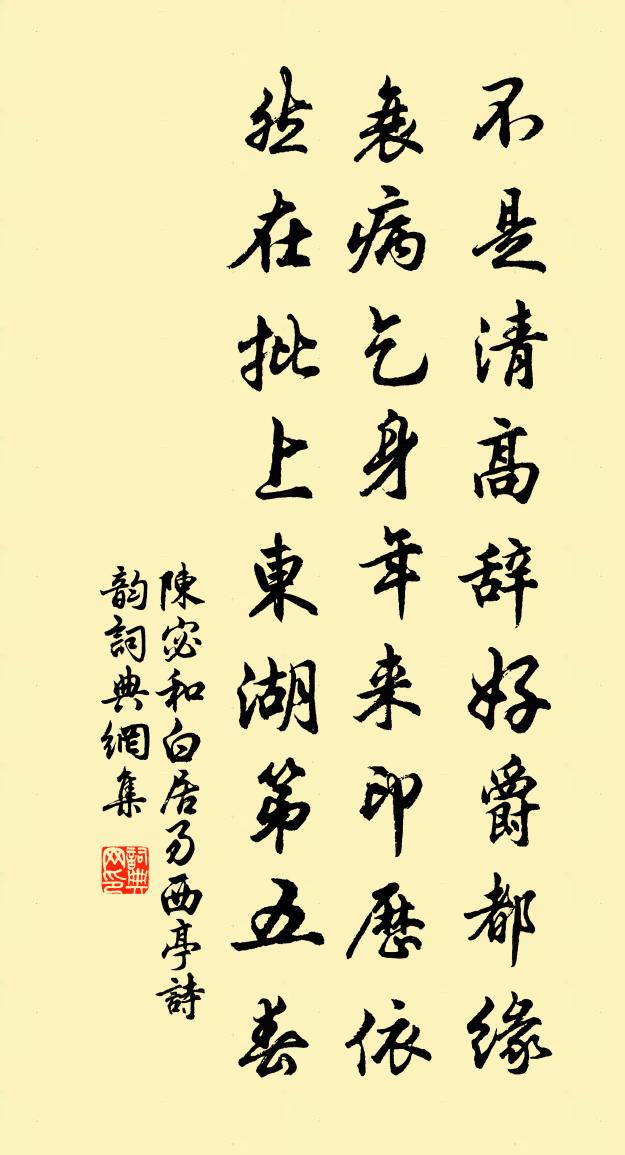 不是清髙辞好爵都緣
衰病乞身年来印歷依
然在批上東湖第五春
陳宓和白居易西亭詩
韵詞典網集
詞典
网印